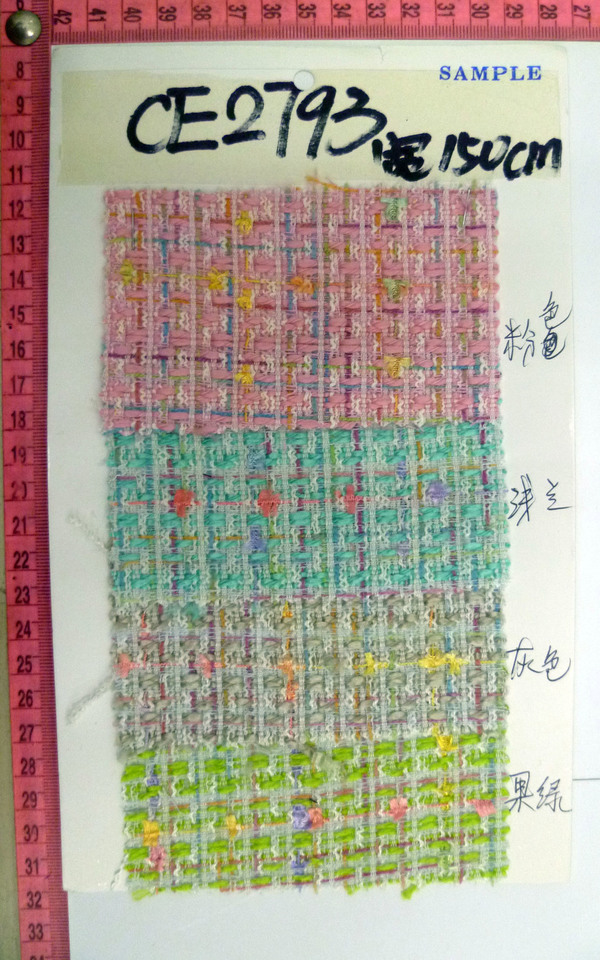 42 41 40 39 38 37 36 35 34 33 32 31 30 29 28 27
8
9
10
11
12
13
14
15
16
17
18
19
20
21
22
23
24
25
26
27
28
29
30
31
32
33
SAMPLE
CE2793
宽150cm
粉色
浅兰
灰色
果绿